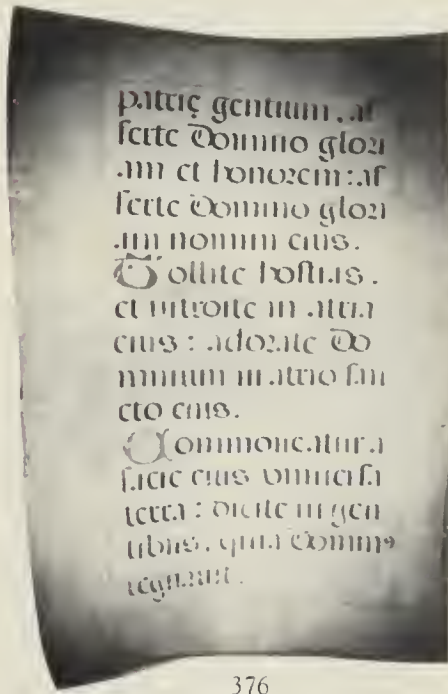 patrię gentium, af
ferte Domino glori
am et honorem: af
ferte Domino glori
am nomini eius.
Tollite hostias,
et introite in atria
eius: adorate Do
minum in atrio san
cto eius.
Commoueatur a
facie eius vniuersa
terra: dicite in gen
tibus, quia Dominus
regnauit.
376